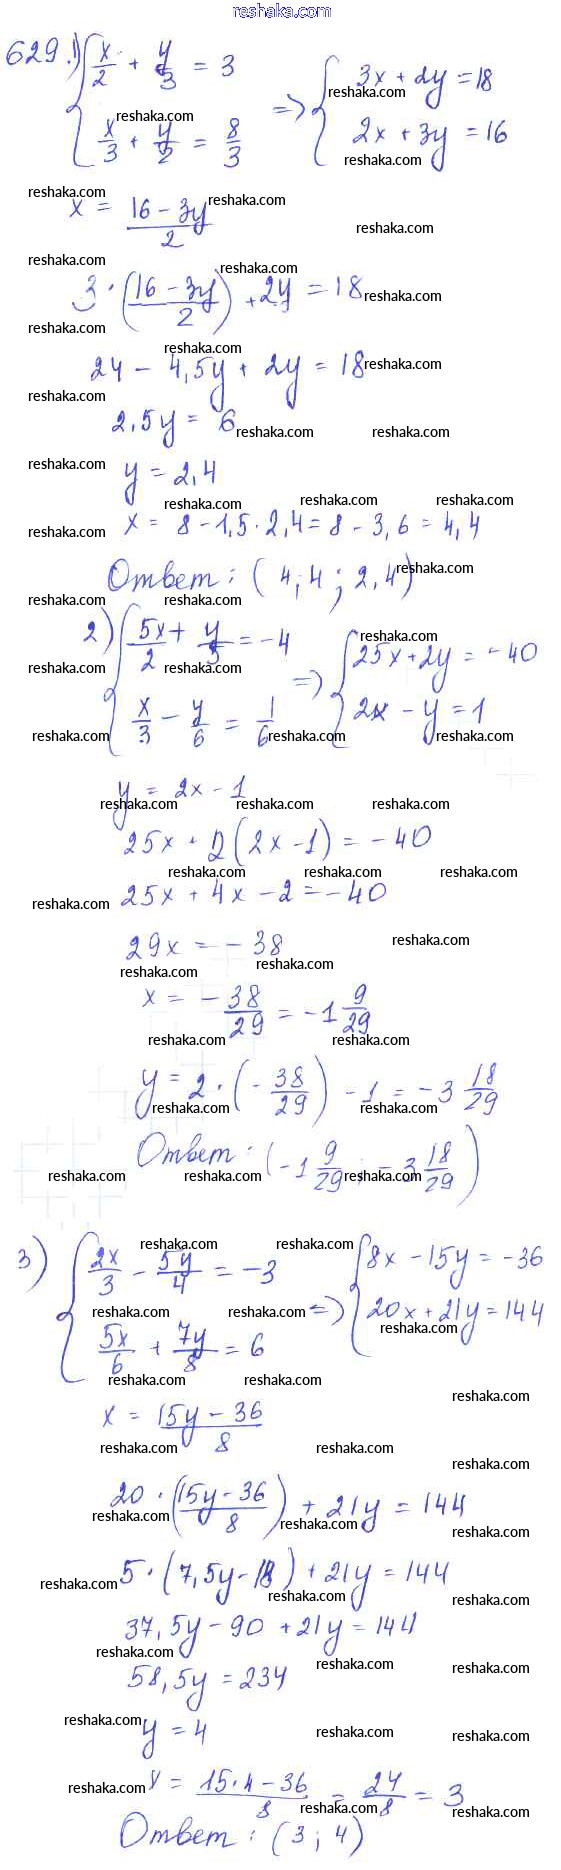 reshaka.com
629. 1) { x/2 + y/3 = 3 => { 3x + 2y = 18
x/3 + y/2 = 8/3 2x + 3y = 16
x = (16 - 3y)/2
3 · ((16 - 3y)/2) + 2y = 18
24 - 4,5y + 2y = 18
2,5y = 6
y = 2,4
x = 8 - 1,5 · 2,4 = 8 - 3,6 = 4,4
Ответ: (4,4; 2,4)
2) { 5x/2 + y/5 = -4 => { 25x + 2y = -40
x/3 - y/6 = 1/6 2x - y = 1
y = 2x - 1
25x + 2(2x - 1) = -40
25x + 4x - 2 = -40
29x = -38
x = -38/29 = -1 9/29
y = 2 · (-38/29) - 1 = -3 18/29
Ответ: (-1 9/29; -3 18/29)
3) { 2x/3 - 5y/4 = -3 => { 8x - 15y = -36
5x/6 + 7y/8 = 6 20x + 21y = 144
x = (15y - 36)/8
20 · ((15y - 36)/8) + 21y = 144
5 · (7,5y - 18) + 21y = 144
37,5y - 90 + 21y = 144
58,5y = 234
y = 4
x = (15·4 - 36)/8 = 24/8 = 3
Ответ: (3; 4)